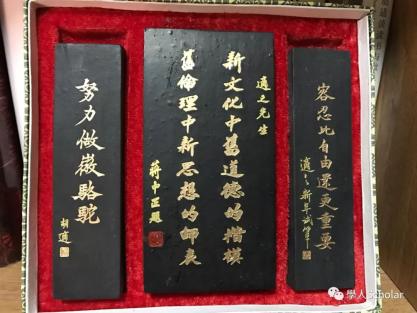 容忍比自由還更重要
適之新年試筆
適之先生
新文化中舊道德的楷模
舊倫理中新思想的師表
蔣中正題
努力做徽駱駝
胡適
學人Scholar